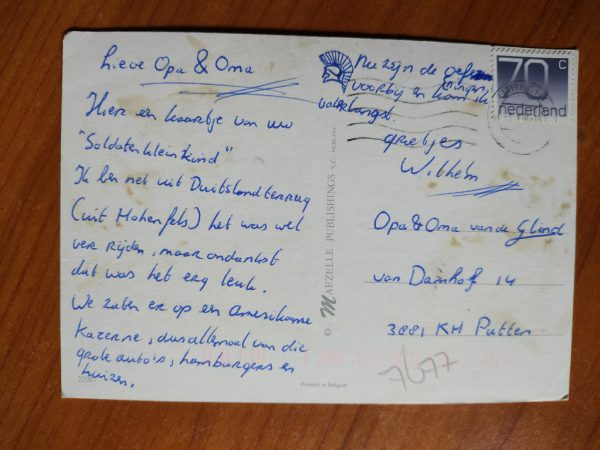 Lieve Opa & Oma
Hier een kaartje van uw
"Soldatenkleinkind"
Ik ben net uit Duitsland terrug
(uit Hohenfels) het was wel
ver rijden, maar ondankst
dat was het erg leuk.
We zaten er op een Amerikaanse
Kazerne, dus allemaal van die
grote auto's, hamburgers en
huizen.
Nu zijn de oefeningen
voorbij en kom ik
vaker langst.
groetjes
Wilhelm
Opa & Oma van de Glind
van Damhof 14
3881 KH Putten
7677
MAEZELLE PUBLISHINGS S.C.
Printed in Belgium
70 c
nederland